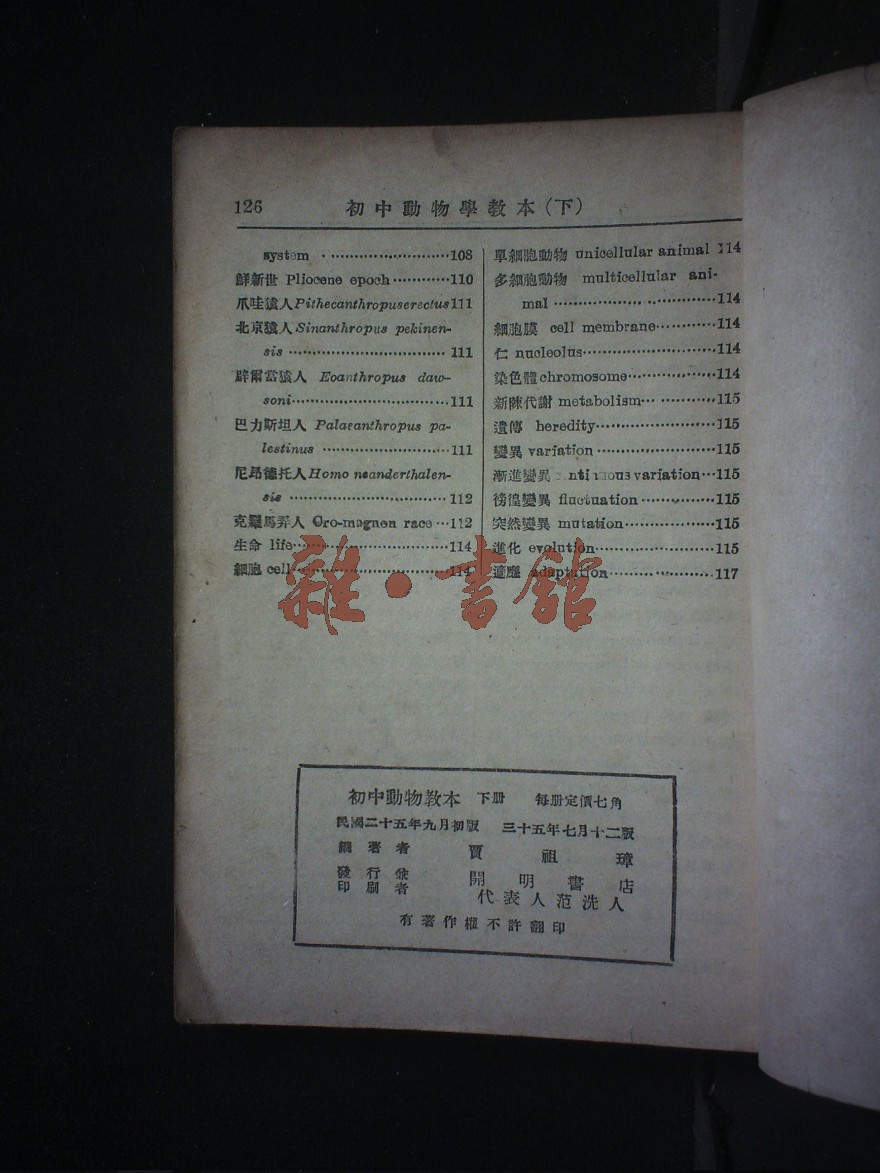 126 初中動物學教本(下)
system ·························108
鮮新世 Pliocene epoch············110
爪哇猿人Pithecanthropuserectus111
北京猿人Sinanthropus pekinen-
sis ································ 111
辟爾當猿人 Eoanthropus daw-
soni································111
巴力斯坦人 Palaeanthropus pa-
lestinus ··························111
尼昂德托人Homo neanderthalen-
sis ································ 112
克羅馬弄人 Cro-magnon race ···112
生命 life································114
細胞 cell································114
單細胞動物 unicellular animal 114
多細胞動物 multicellular ani-
mal ································114
細胞膜 cell membrane············114
仁 nucleolus··························114
染色體chromosome·················114
新陳代謝 metabolism··· ···········115
遺傳 heredity·························115
變異 variation ························115
漸進變異 variation···115
徬徨變異 fluctuation ·············115
突然變異 mutation·················115
進化 evolution·······················115
適應 adaptation·····················117
雜·書館
初中動物教本 下册 每册定價七角
民國二十五年九月初版 三十五年七月十二版
編著者 賈祖璋
發行兼印刷者 開明書店
代表人范洗人
有著作權不許翻印